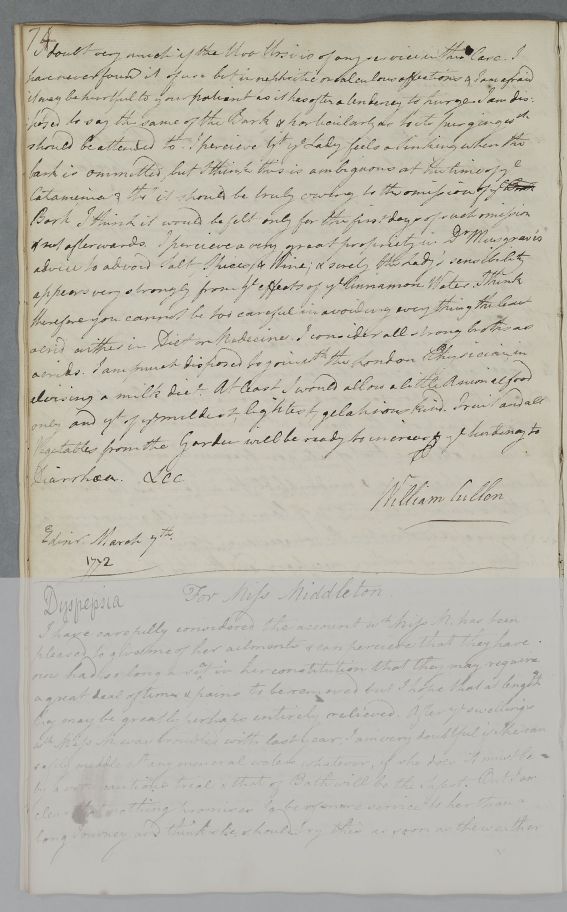 74
I doubt very much if the Uva Ursi is of any service in this Case. I
have never found it of use but in nephritic or calculous affections & I am afraid
it may be hurtful to your patient as it has often a tendency to purge. I am dis-
posed to say the same of the Bark & particularly as to its purging wch
should be attended to. I percieve yt ye Lady feels a sinking when the
bark is ommitted, but I think this is ambiguous at the time of ye
Catamenia & tho' it should be truly owing to the omission of ye
Bark I think it would be felt only for the first days of such omission
& not afterwards. I percieve a very great propriety in Dr Musgrave's
advice to abvoid Salt Spices & Wine; & surely the Lady's sensibility
appears very strongly from ye effects of ye Cinnamon Water. I think
therefore you cannot be too careful in avoiding every thing the least
acrid either in Diet or Medicine. I consider all strong broths as
acrids. I am much disposed to go in wth the London Physician in
advising a milk diet. At least I would allow a little Animal food
only and yt of ye mildest, lightest, gelatinous kind. Fruit and all
Vegetables from the Garden will be ready to increase ye tendency to
Diarrhœa. &cc
William Cullen
Edinr. March 7th.
1772
Dyspepsia For Miss Middleton.
I have carefully considered the account wch Miss M. has been
pleased to give me of her ailments & can percieve that they have
now had so long a seat in her constitution that they may require
a great deal of time & pains to be removed but I hope that at length
they may be greatly perhaps entirely relieved. After ye swellings
wch Miss M. was troubled with last year, I am very doubtful if she can
safely meddle with any mineral waters whatever, if she does it must be
by a very cautious trial & that of Bath will be the safest. But I am
clear that nothing promises to be of more service to her than a
long journey and think she should try this as soon as the weather